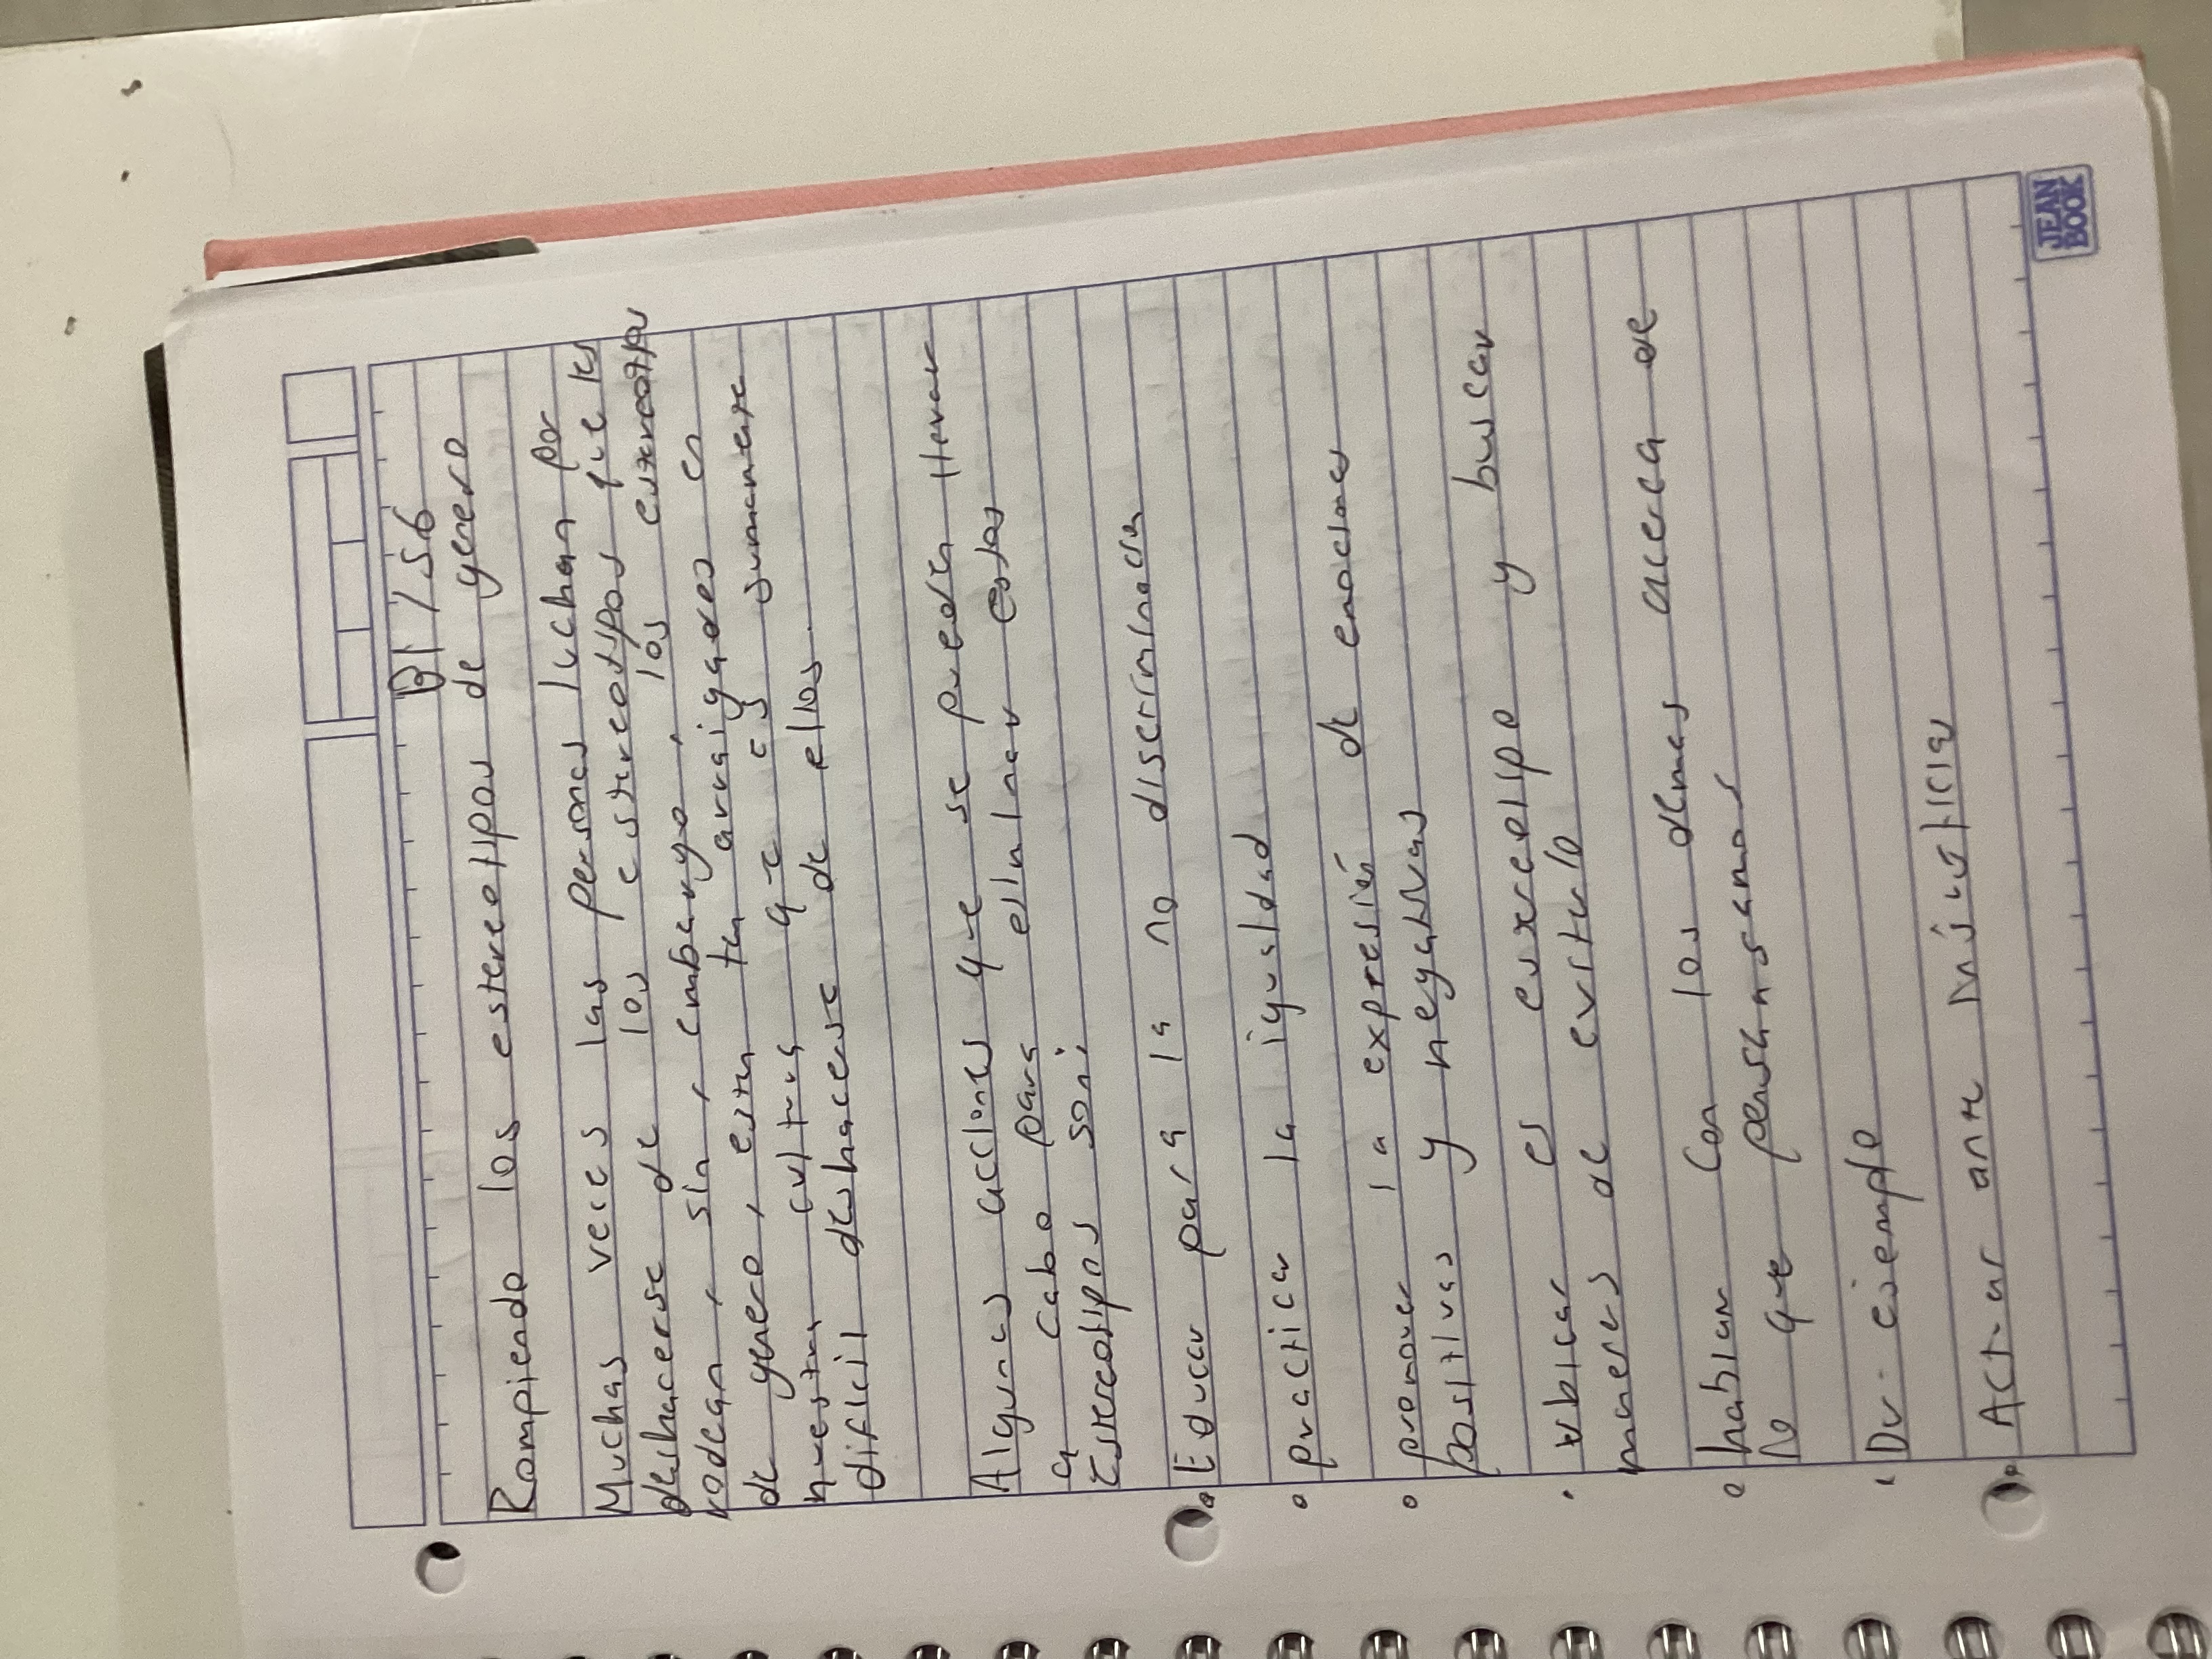 B1/S6
Rompiendo los estereotipos de genero
Muchas veces las personas luchan por
deshacerse de los estereotipos que los
rodean, sin, embargo, los estereotipos
de genero, estan tan arraigados en
nuestra cultura que es sumamente
dificil deshacerse de ellos.
Algunas acciones que se pueden llevar
a cabo para eliminar estos
Estereotipos son:
Educar para la no discriminacion
practicar la igualdad
promover la expresión de emociones
positivas y negativas
ubicar el estereotipo y buscar
maneras de evitarlo
hablar con los demas acerca de
lo que pensamos
Dar ejemplo
Actuar ante injusticias
JEAN BOOK